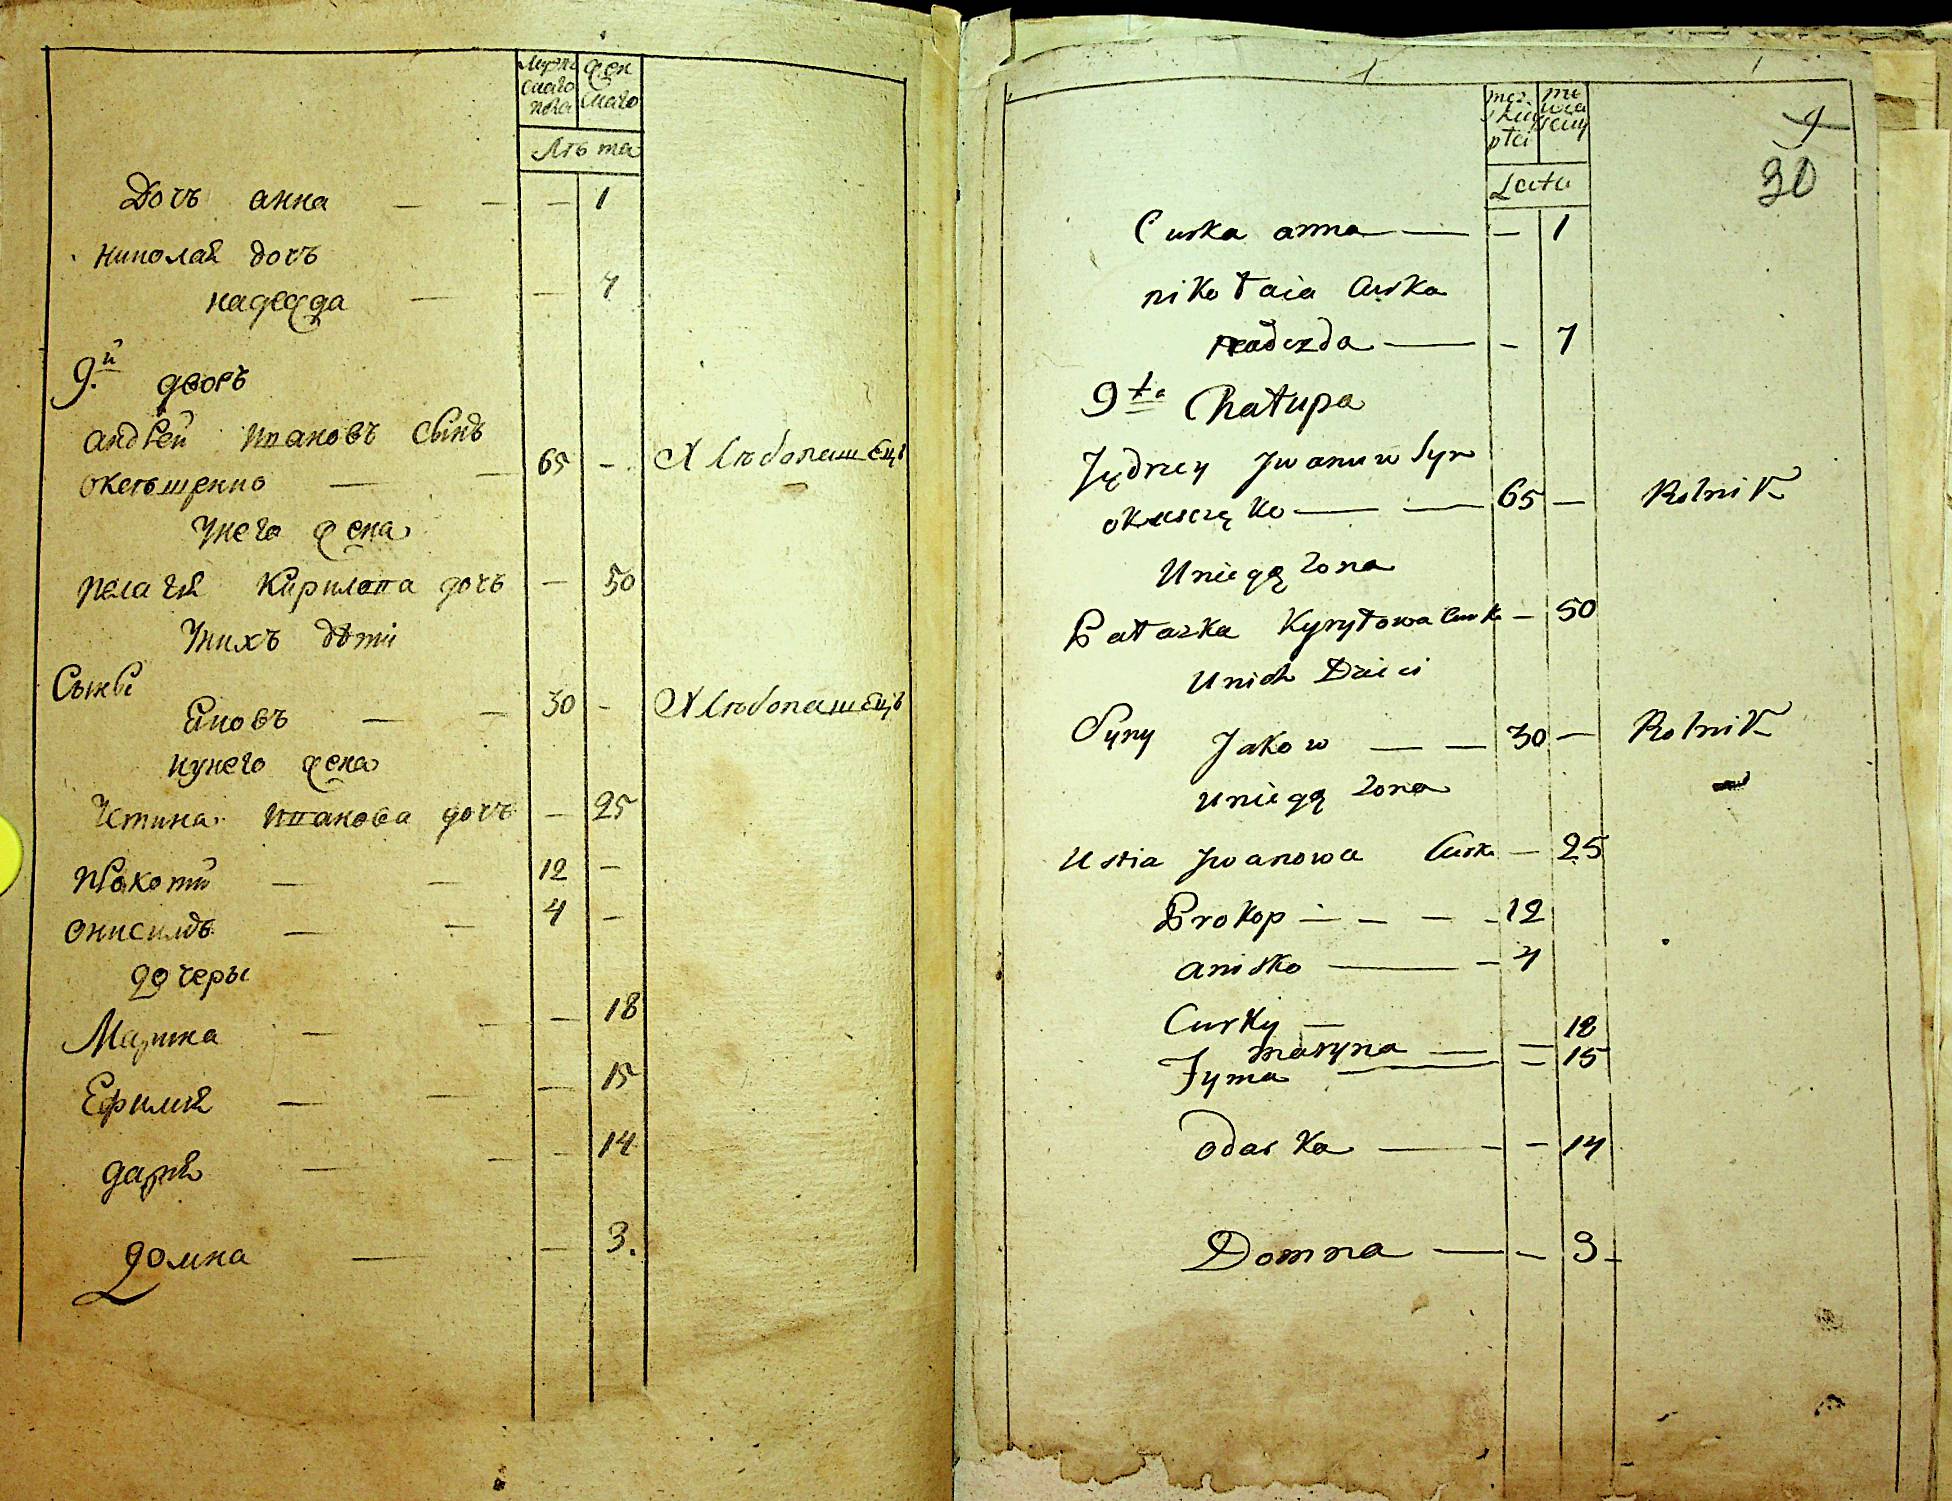 Мужескаго пола
Женскаго
Лѣта
Дочъ анна — — — 1
Николай дочъ
надежда — — 7
9.й дворъ
андрей Ивановъ Сынъ
— 65 — Хлѣбопашецъ
Унего жена
Пелагѣй Кирилова дочъ — 50
Унихъ дѣти
Сыны
Яковъ — — 30 — Хлѣбопашецъ
Иунего жена
Устина Иванова дочъ — 25
Прокопий — — 12 —
Онисимъ — — 4 —
дочеры
Марина — — — 18
Ефимия — — — 15
дария — — — 14
домна — — 3.
męzkiej płci
Lata
9
30
Curka anna — — — 1
nikołaia Curka
nadezda — — 7
9ta Chałupa
Jędrzey Jwanuw Syn
— — 65 — Rolnik
Uniegą Zona
Pałazka Kyryłowa Curk — 50
Unich Dzieci
Syny Jakow — — 30 — Rolnik
Uniegą Zona
Ustia Jwanowa Curk — 25
Prokop — — — — 12
anisko — — 4
Curky —
maryna — — 18
Jyma — — 15
odarka — — — 14
Domna — — 3 -